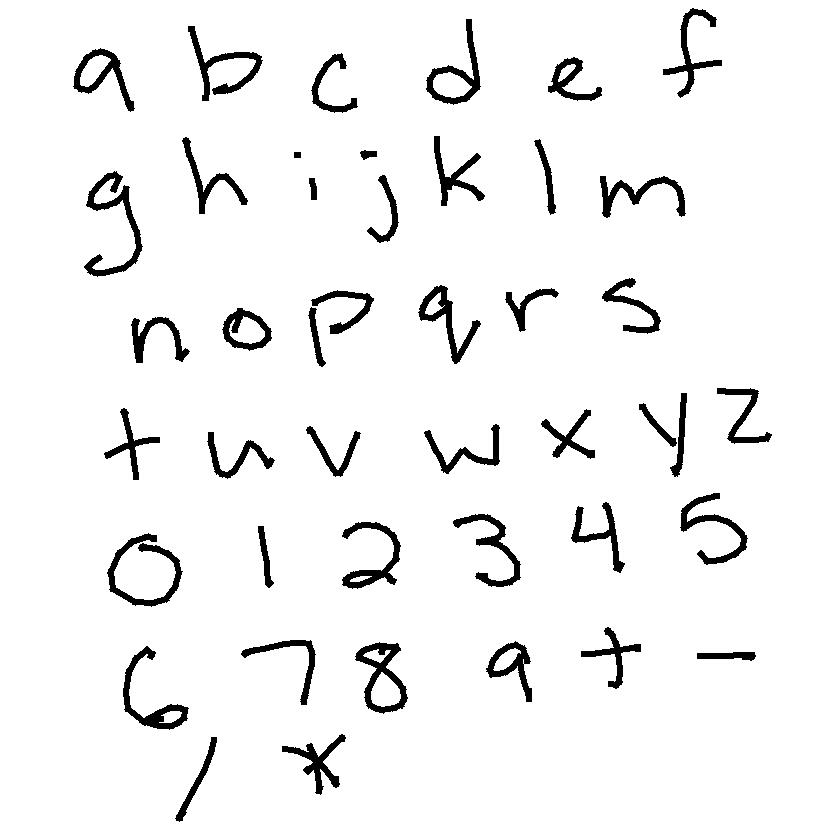 a b c d e f
g h i j k l m
n o p q r s
t u v w x y z
0 1 2 3 4 5
6 7 8 9 + -
/ *